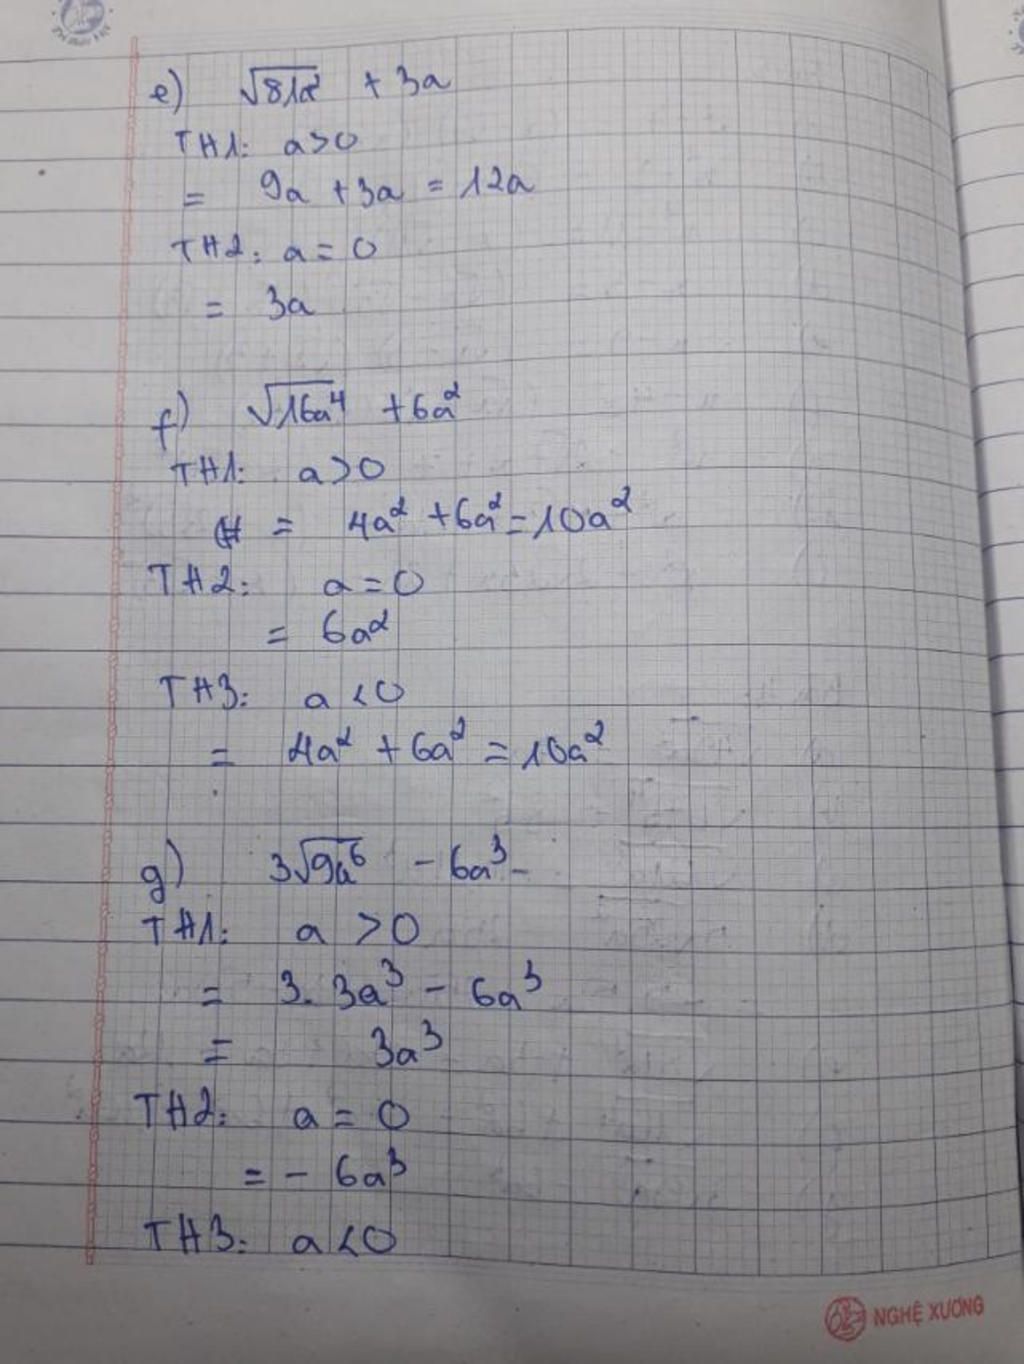 e) √81a² + 3a
TH1: a>0
= 9a + 3a = 12a
TH2: a = 0
= 3a
f) √16a⁴ + 6a²
TH1: a>0
= 4a² + 6a² = 10a²
TH2: a = 0
= 6a²
TH3: a < 0
= 4a² + 6a² = 10a²
g) 3√9a⁶ - 6a³ -
TH1: a > 0
= 3. 3a³ - 6a³
= 3a³
TH2: a = 0
= - 6a³
TH3: a < 0
NGHỆ XƯƠNG